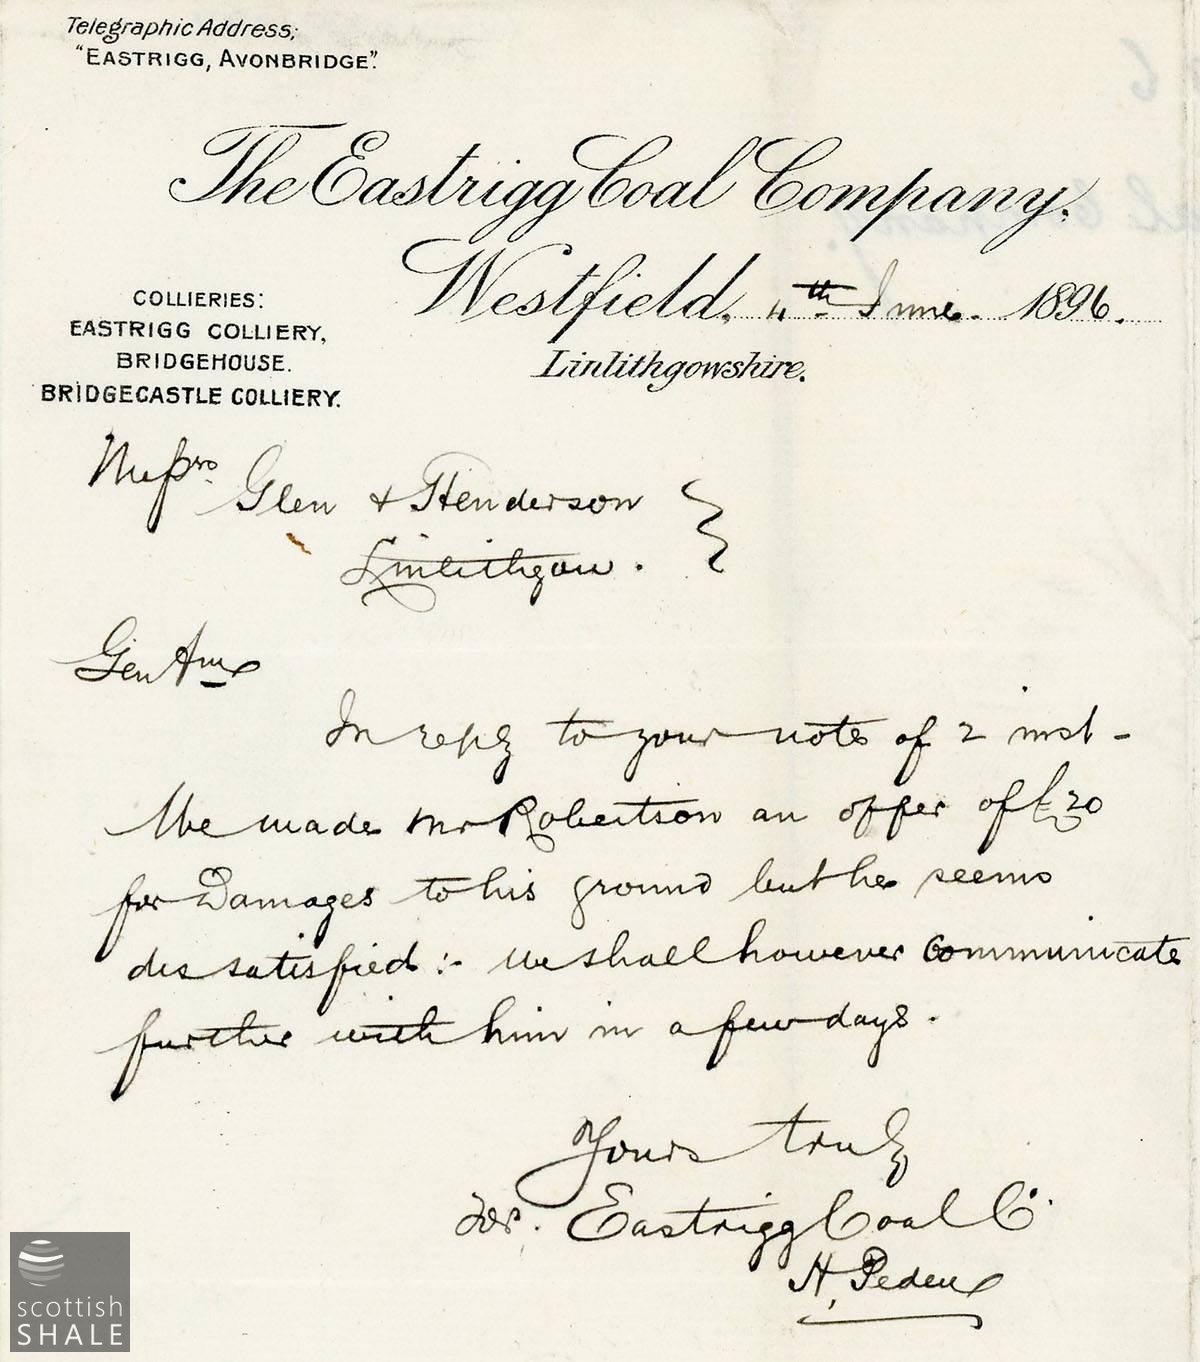 Telegraphic Address;
"EASTRIGG, AVONBRIDGE".
The Eastrigg Coal Company,
Westfield, 4th June 1896.
Linlithgowshire.
COLLIERIES:
EASTRIGG COLLIERY,
BRIDGEHOUSE.
BRIDGECASTLE COLLIERY.
Messrs. Glen & Henderson
Linlithgow.
Gentlmn
In reply to your note of 2 inst -
We made Mr Robertson an offer of £20
for Damages to his ground but he seems
dissatisfied :- We shall however Communicate
further with him in a few days.
Yours truly
For. Eastrigg Coal Co.
H. Peden
scottish
SHALE